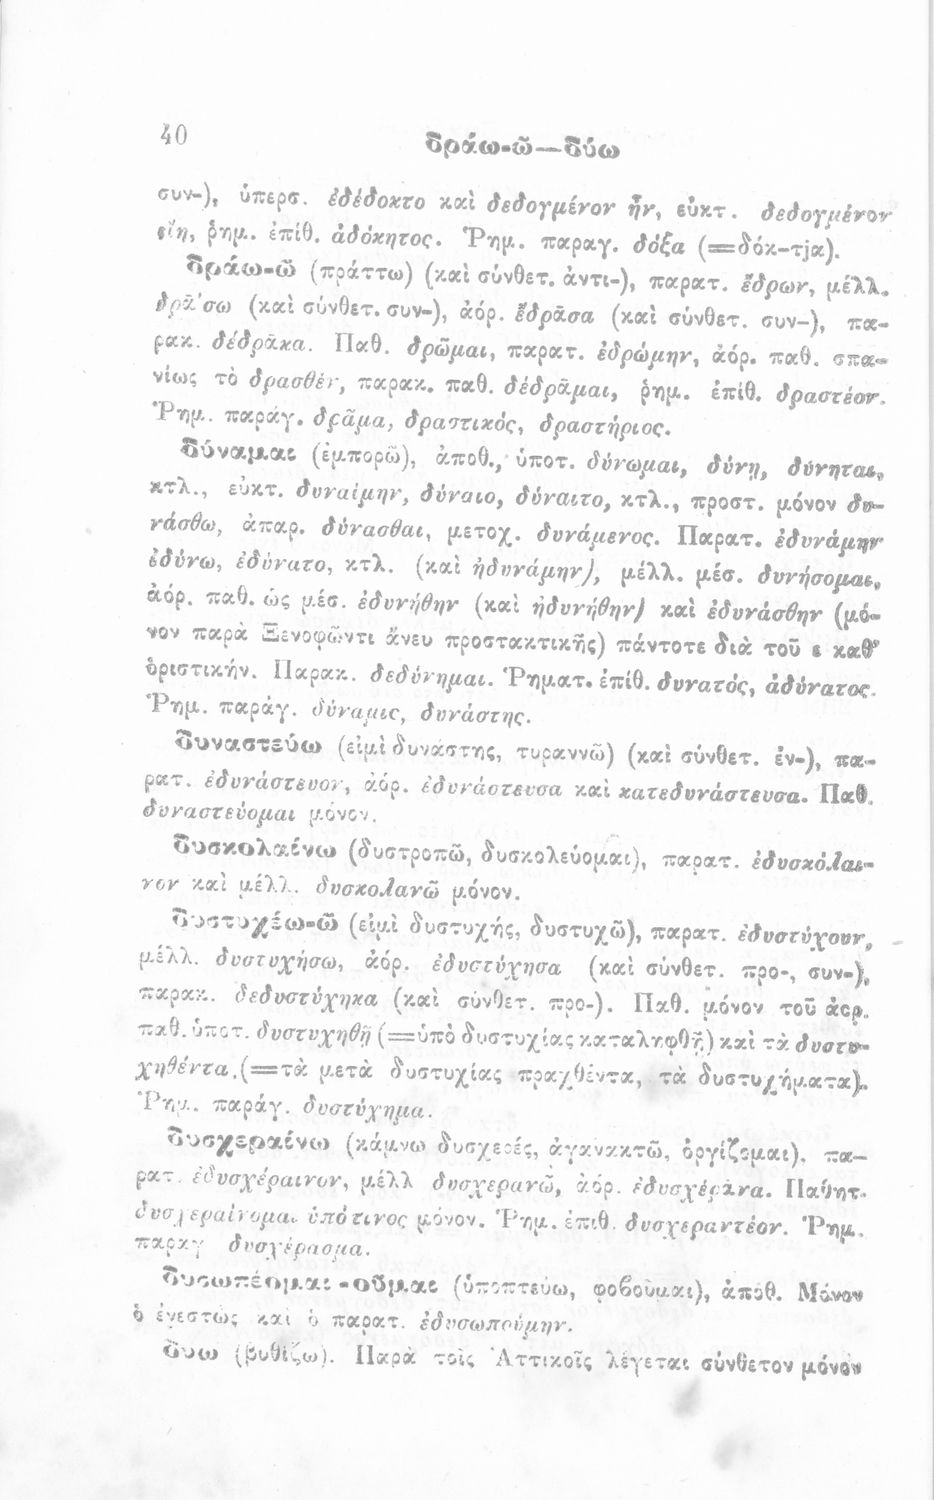 40
δράω-ῶ—δύω
συν-), ὑπερσ. ἐδέδοκτο καὶ δεδογμένον ἦν, εὐκτ. δεδογμένον
εἴη, ῥημ. ἐπίθ. ἀδόκητος. Ῥημ. παραγ. δόξα (=δόκ-τjα).
δράω-ῶ (πράττω) (καὶ σύνθετ. ἀντι-), παρατ. ἔδρων, μέλλ.
δρᾱ́σω (καὶ σύνθετ. συν-), ἀόρ. ἔδρᾱσα (καὶ σύνθετ. συν-), πα-
ρακ. δέδρᾱκα. Παθ. δρῶμαι, παρατ. ἐδρώμην, ἀόρ. παθ. σπα-
νίως τὸ δρασθέν, παρακ. παθ. δέδρᾱμαι, ῥημ. ἐπίθ. δραστέον.
Ῥημ. παράγ. δρᾶμα, δραστικός, δραστήριος.
δύναμαι (ἐμπορῶ), ἀποθ., ὑποτ. δύνωμαι, δύνῃ, δύνηται,
κτλ., εὐκτ. δυναίμην, δύναιο, δύναιτο, κτλ., προστ. μόνον δυ-
νάσθω, ἀπαρ. δύνασθαι, μετοχ. δυνάμενος. Παρατ. ἐδυνάμην
ἐδύνω, ἐδύνατο, κτλ. (καὶ ἠδυνάμην), μέλλ. μέσ. δυνήσομαι,
ἀόρ. παθ. ὡς μέσ. ἐδυνήθην (καὶ ἠδυνήθην) καὶ ἐδυνάσθην (μό-
νον παρὰ Ξενοφῶντι ἄνευ προστακτικῆς) πάντοτε διὰ τοῦ ε καθ'
ὁριστικήν. Παρακ. δεδύνημαι. Ῥηματ. ἐπίθ. δυνατός, ἀδύνατος.
Ῥημ. παράγ. δύναμις, δυνάστης.
δυναστεύω (εἰμὶ δυνάστης, τυραννῶ) (καὶ σύνθετ. ἐν-), πα-
ρατ. ἐδυνάστευον, ἀόρ. ἐδυνάστευσα καὶ κατεδυνάστευσα. Παθ.
δυναστεύομαι μόνον.
δυσκολαίνω (δυστροπῶ, δυσκολεύομαι), παρατ. ἐδυσκόλαι-
νον καὶ μέλλ. δυσκολανῶ μόνον.
δυστυχέω-ῶ (εἰμὶ δυστυχής, δυστυχῶ), παρατ. ἐδυστύχουν,
μέλλ. δυστυχήσω, ἀόρ. ἐδυστύχησα (καὶ σύνθετ. προ-, συν-),
παρακ. δεδυστύχηκα (καὶ σύνθετ. προ-). Παθ. μόνον τοῦ ἀορ.
παθ. ὑποτ. δυστυχηθῇ (=ὑπὸ δυστυχίας καταληφθῇ) καὶ τὰ δυστυ-
χηθέντα (=τὰ μετὰ δυστυχίας πραχθέντα, τὰ δυστυχήματα).
Ῥημ. παράγ. δυστύχημα.
δυσχεραίνω (κάμνω δυσχερές, ἀγανακτῶ, ὀργίζομαι), πα-
ρατ. ἐδυσχέραινον, μέλλ δυσχερανῶ, ἀόρ. ἐδυσχέρανα. Παθητ.
δυσχεραίνομαι ὑπό τινος μόνον. Ῥημ. ἐπιθ. δυσχεραντέον. Ῥημ.
παραγ δυσχέρασμα.
δυσωπέομαι-οῦμαι (ὑποπτεύω, φοβοῦμαι), ἀπόθ. Μόνον
ὁ ἐνεστὼς καὶ ὁ παρατ. ἐδυσωπούμην.
δύω (βυθίζω). Παρὰ τοῖς Ἀττικοῖς λέγεται σύνθετον μόνον